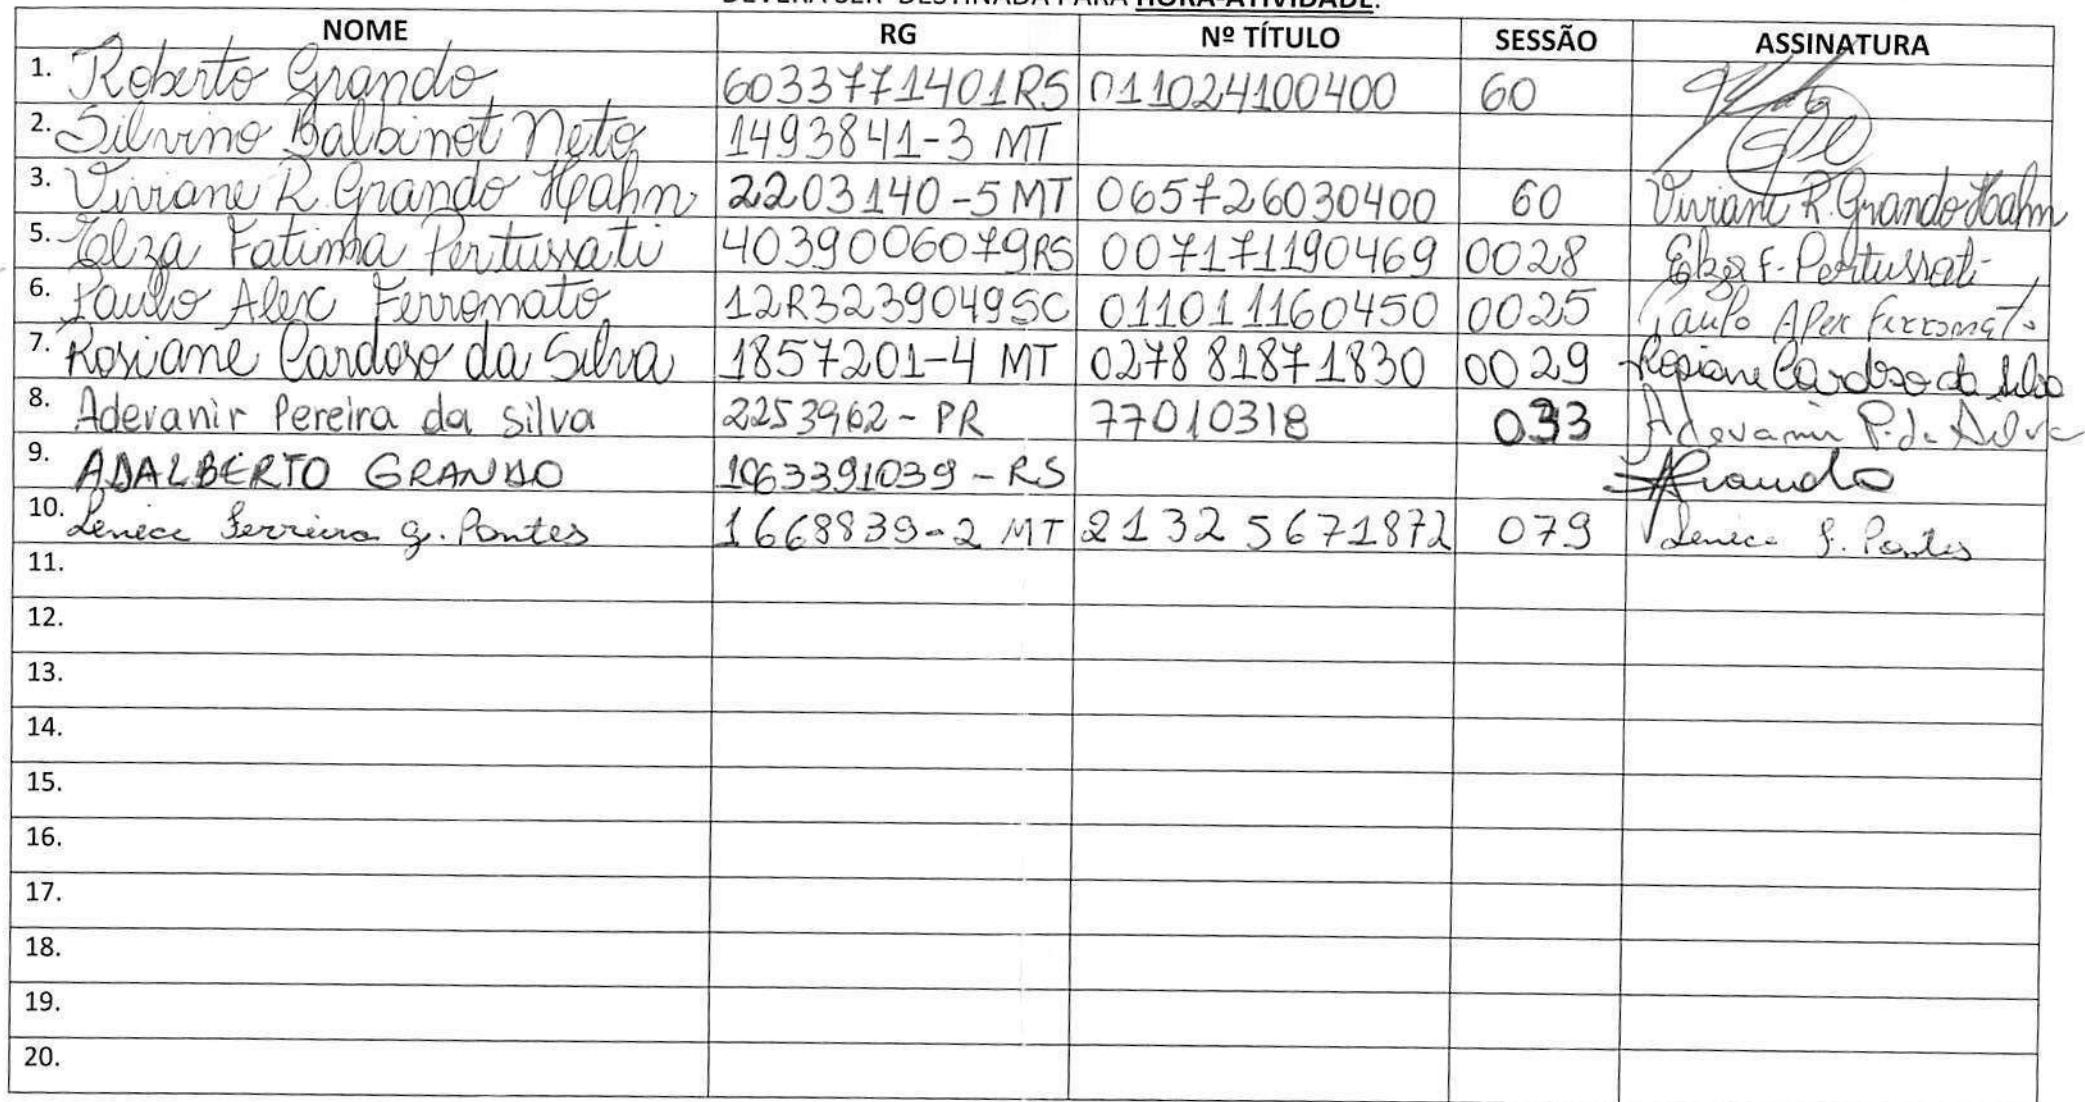 DEVERÁ SER DESTINADA PARA HORA-ATIVIDADE.
NOME RG Nº TÍTULO SESSÃO ASSINATURA
1. Roberto Grando 6033771401RS 011024100400 60
2. Silvino Balbinot Neto 1493841-3 MT
3. Viviane R. Grando Hahn 2203140-5 MT 065726030400 60 Viviane R. Grando Hahn
5. Elza Fatimba Pertussati 4039006079RS 007171190469 0028 Elza F. Pertussati
6. Paulo Alex Ferronato 12R3239049SC 011011160450 0025 Paulo Alex Ferronato
7. Rosiane Cardoso da Silva 1857201-4 MT 0278 81871830 0029 Rosiane Cardoso da Silva
8. Adevanir Pereira da silva 2253962- PR 77010318 033 Adevanir P. da Silva
9. ADALBERTO GRANDO 1063391039-RS AGrando
10. Lenece Ferreira G. Pontes 1668839-2 MT 2132 5671872 079 Lenece F. Pontes
11.
12.
13.
14.
15.
16.
17.
18.
19.
20.